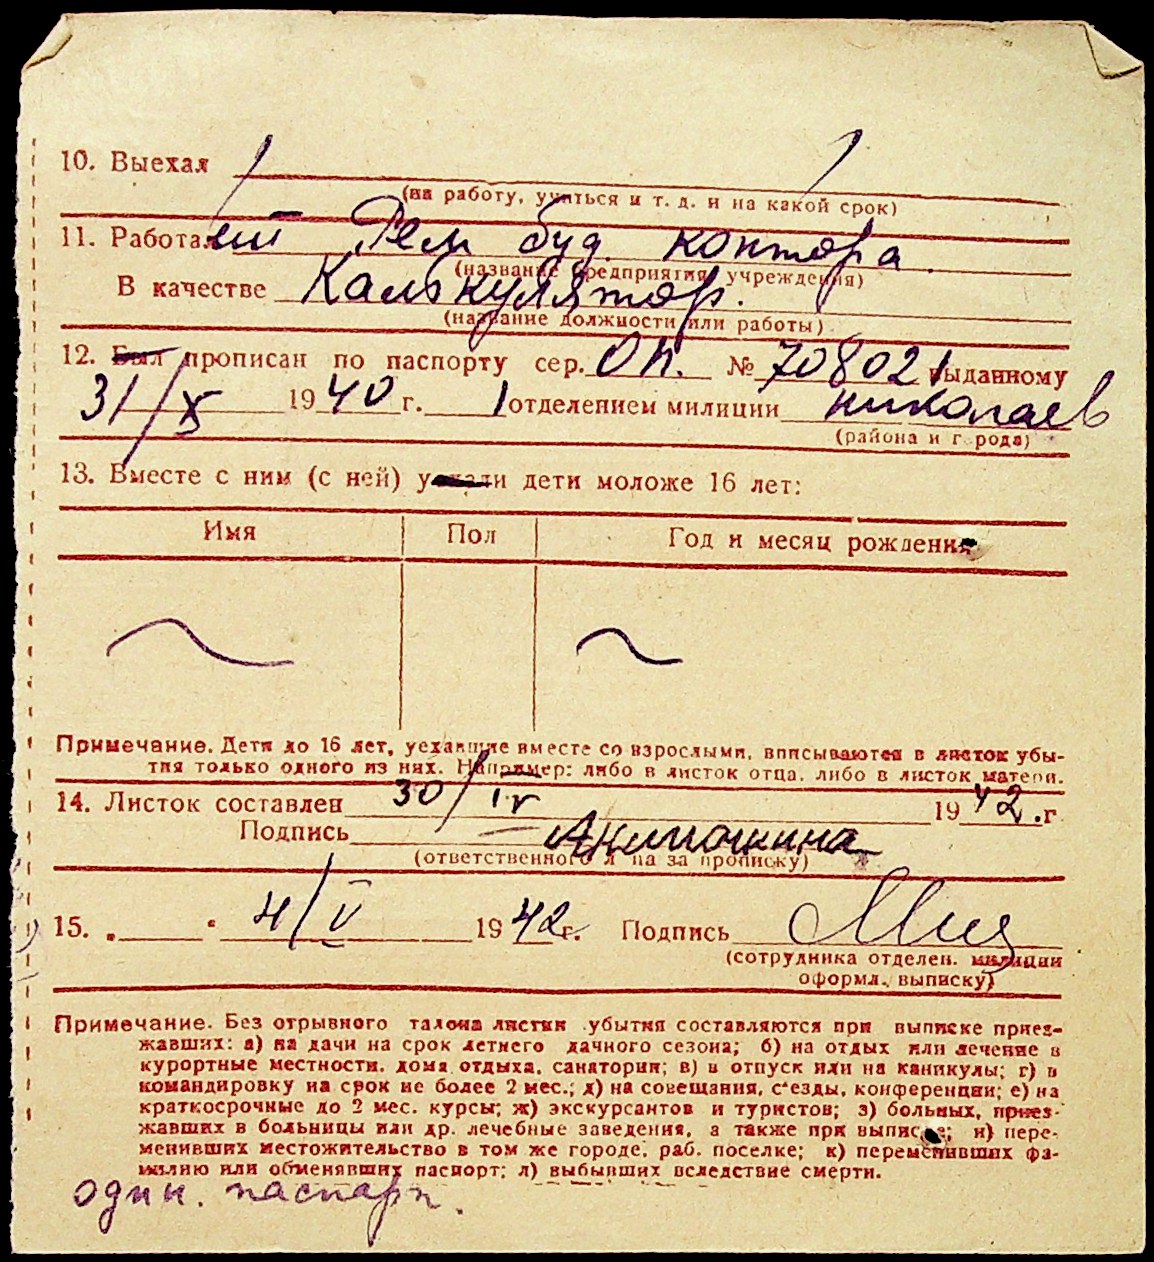 10. Выехал
(на работу, учиться и т. д. и на какой срок)
11. Работает Рем буд. контора.
(название предприятия, учреждения)
В качестве Калькулятор.
(название должности или работы)
12. Был прописан по паспорту сер. ОП. № 708021 выданному
31/X 1940 г. 1 отделением милиции николаев
(района и города)
13. Вместе с ним (с ней) уехали дети моложе 16 лет:
Имя Пол Год и месяц рождения
Примечание. Дети до 16 лет, уехавшие вместе со взрослыми, вписываются в листок убы-
тия только одного из них. Например: либо в листок отца, либо в листок матери.
14. Листок составлен 30/IV 1942.г
Подпись
(ответственного л на за прописку)
15. „ " 4/V 1942г. Подпись
(сотрудника отделен. милиции
оформл. выписку)
Примечание. Без отрывного талона листки убытия составляются при выписке приез-
жавших: а) на дачи на срок летнего дачного сезона; б) на отдых или лечение в
курортные местности, дома отдыха, санатории; в) в отпуск или на каникулы; г) в
командировку на срок не более 2 мес.; д) на совещания, с'езды, конференции; е) на
краткосрочные до 2 мес. курсы; ж) экскурсантов и туристов; з) больных, приез-
жавших в больницы или др. лечебные заведения, а также при выписке; и) пере-
менивших местожительство в том же городе, раб. поселке; к) переменивших фа-
милию или обменявших паспорт; л) выбывших вследствие смерти.
один. паспорт.